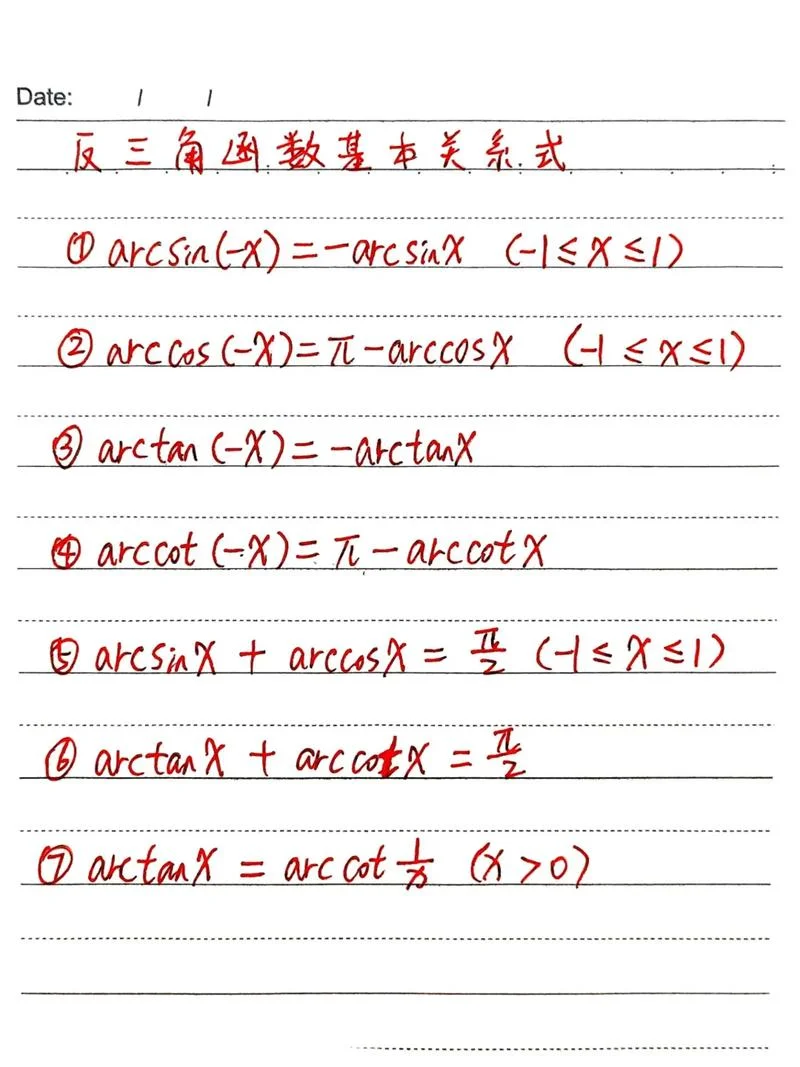 Date: / /
反三角函数基本关系式
① arcsin(-x)=-arcsinx (-1≤x≤1)
② arccos(-x)=π-arccosx (-1≤x≤1)
③ arctan(-x)=-arctanx
④ arccot(-x)=π-arccotx
⑤ arcsinx + arccosx = π/2 (-1≤x≤1)
⑥ arctanx + arccotx = π/2
⑦ arctanx = arccot 1/x (x>0)